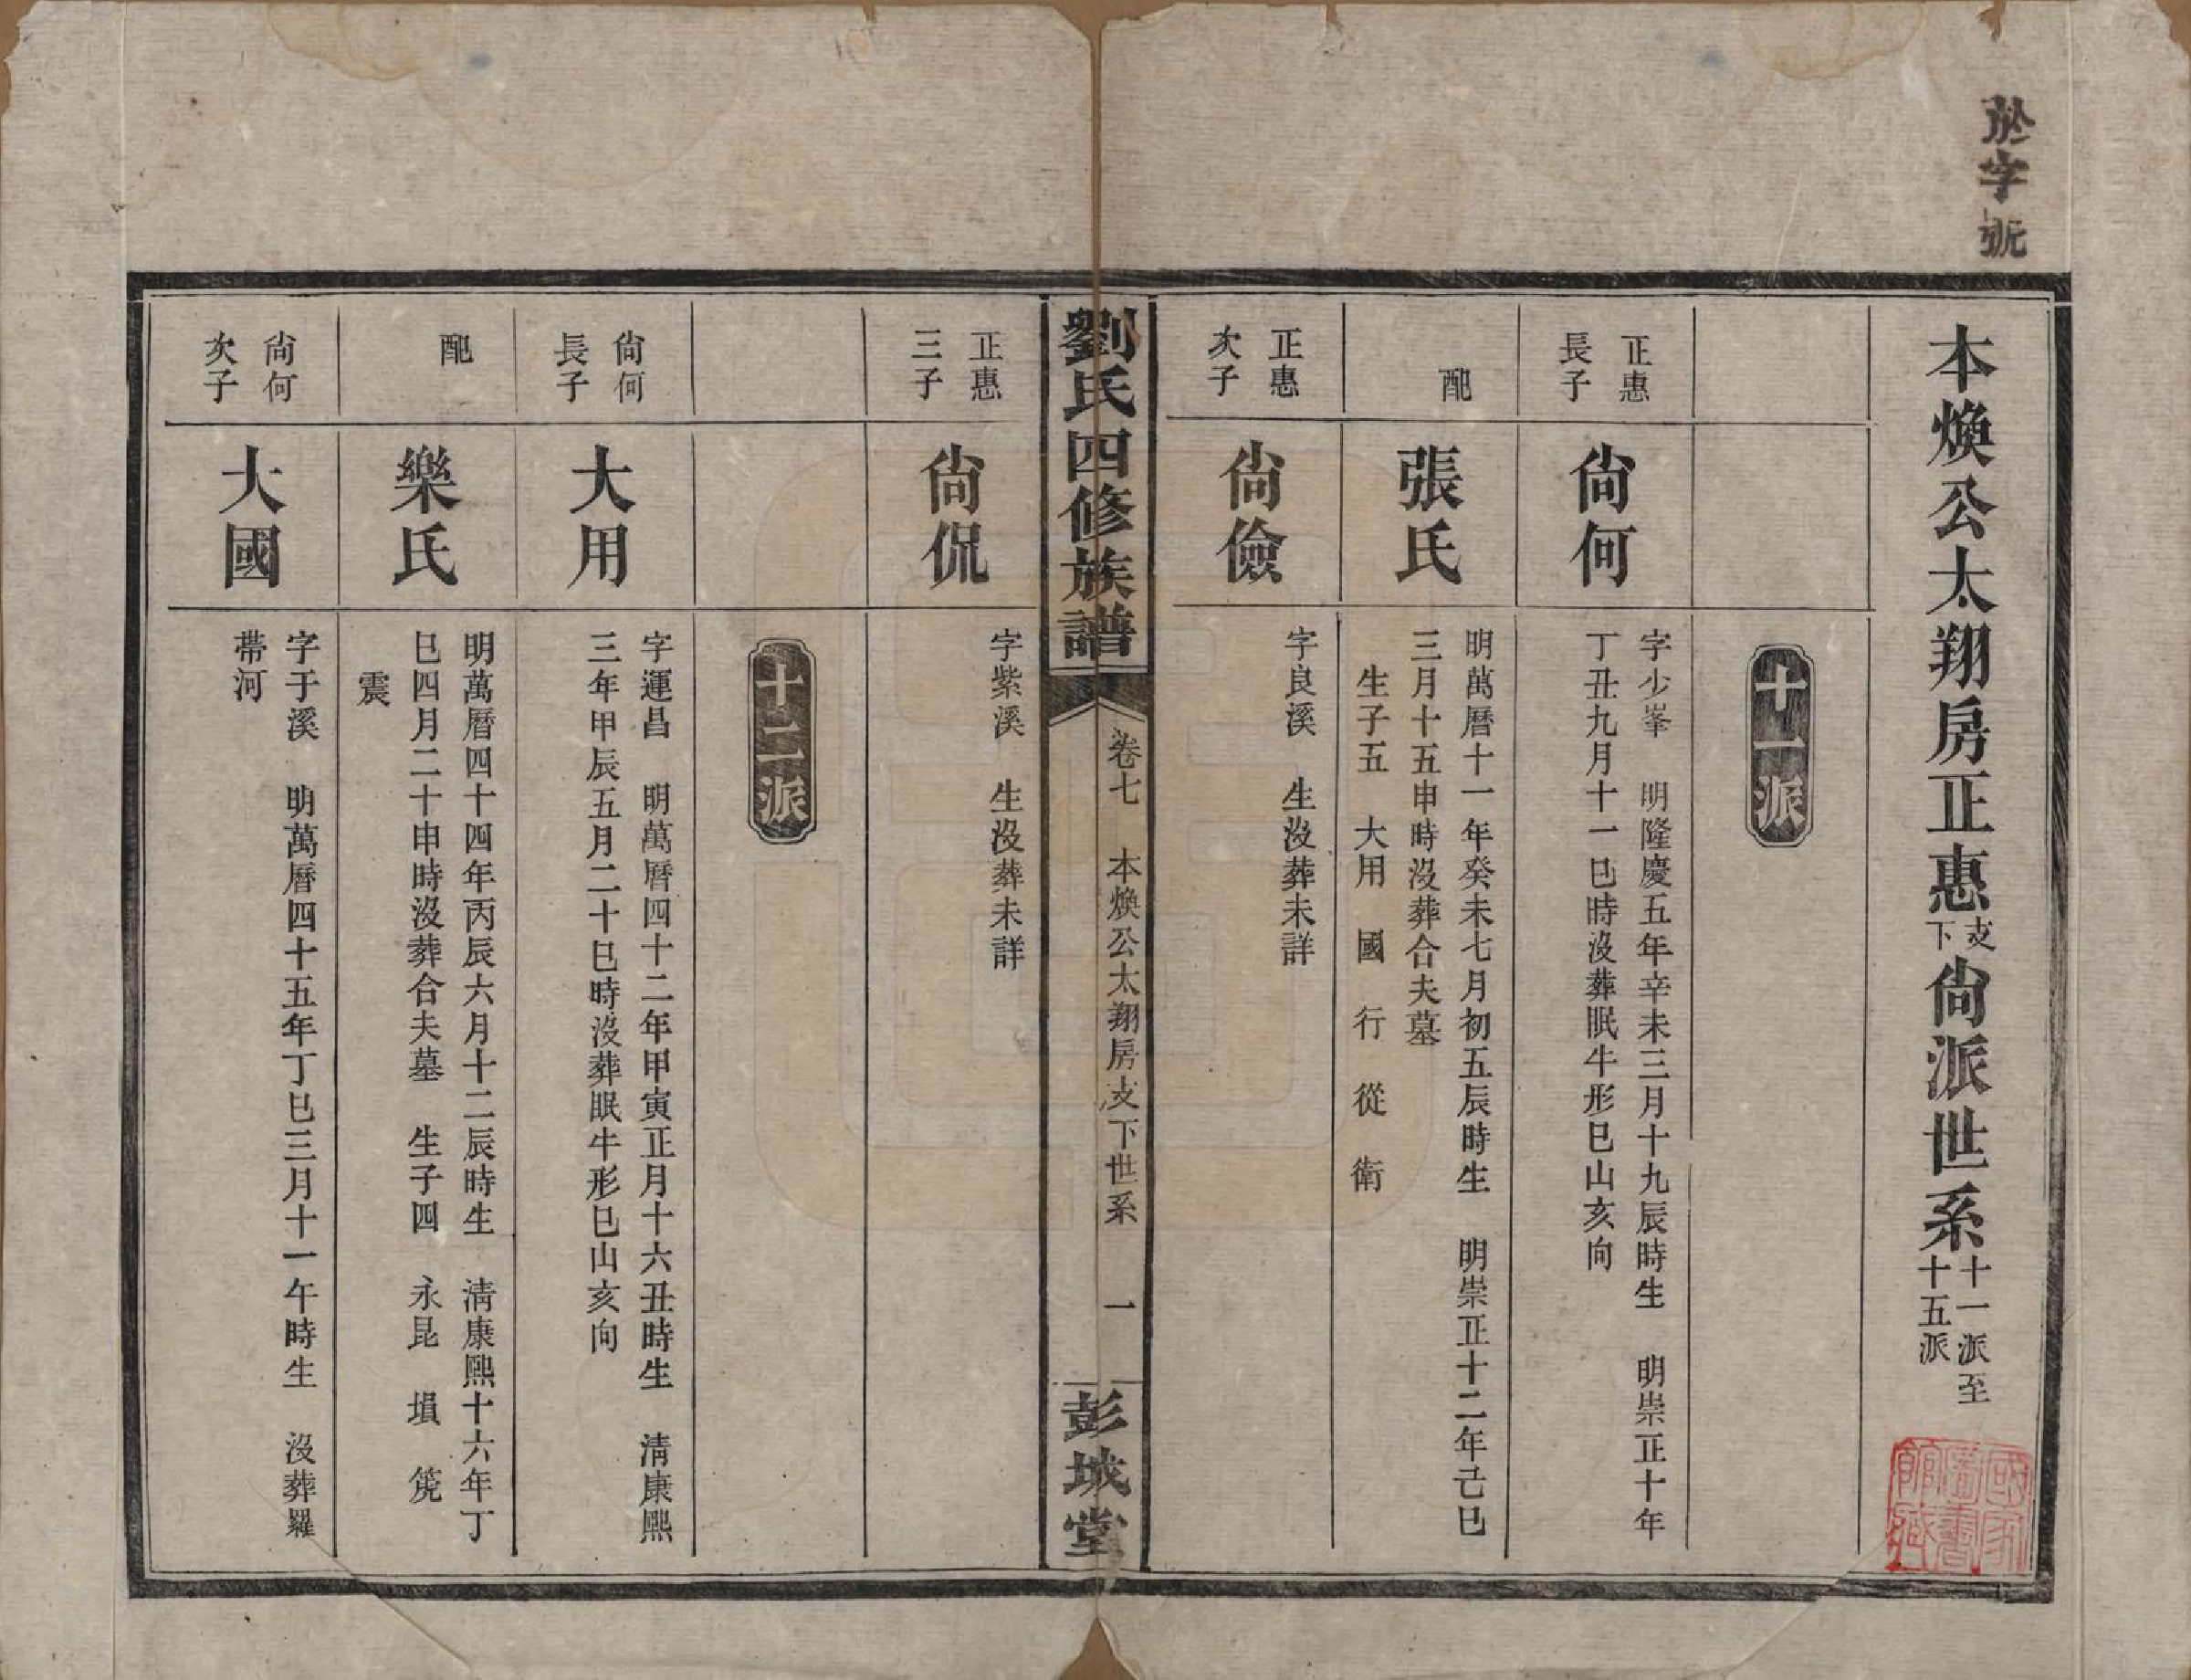 於字號
本煥公太翔房正惠支下尙派世系十一派至十五派
十一派
正惠
長子
尙何
字少峯　明隆慶五年辛未三月十九辰時生　明崇正十年
丁丑九月十一巳時沒葬眠牛形巳山亥向
配
張氏
明萬曆十一年癸未七月初五辰時生　明崇正十二年己巳
三月十五申時沒葬合夫墓
生子五　大用　國　行　從　衛
正惠
次子
尙儉
字良溪　生沒葬未詳
劉氏四修族譜
卷七　本煥公太翔房支下世系　一
彭城堂
正惠
三子
尙侃
字紫溪　生沒葬未詳
十二派
尙何
長子
大用
字運昌　明萬曆四十二年甲寅正月十六丑時生　清康熙
三年甲辰五月二十巳時沒葬眠牛形巳山亥向
配
樂氏
明萬曆四十四年丙辰六月十二辰時生　清康熙十六年丁
巳四月二十申時沒葬合夫墓　生子四　永昆　塤　筦
震
尙何
次子
大國
字于溪　明萬曆四十五年丁巳三月十一午時生　沒葬羅
帶河
國家圖書館藏